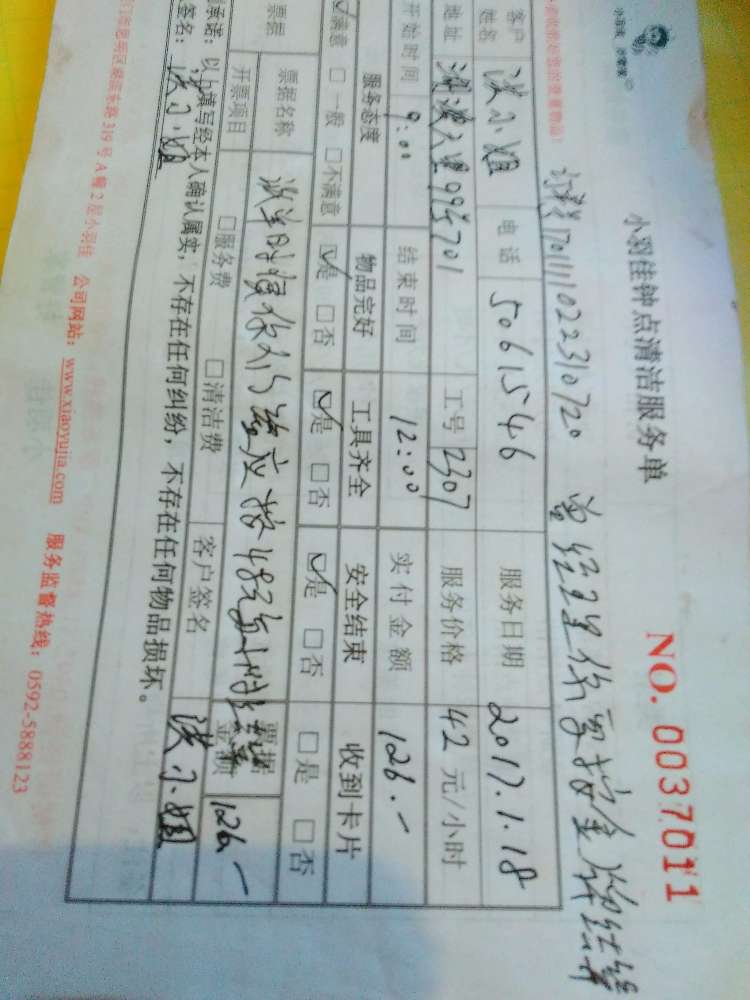 小羽佳钟点清洁服务单
NO. 0037011
客户姓名 洪小姐 电话 5061546 服务日期 2017.1.18
地址 工号 2307 服务价格 42 元/小时
开始时间 9:00 结束时间 12:00 实付金额 126.-
服务态度 物品完好 工具齐全 安全结束 收到卡片
☑满意 □一般 □不满意 ☑是 □否 ☑是 □否 ☑是 □否 □是 □否
票据 票据名称
开票项目 □服务费 □清洁费 票据金额 126.-
承诺：以上填写经本人确认属实，不存在任何纠纷，不存在任何物品损坏。
签名：洪小姐 客户签名 洪小姐
319号A幢2层小羽佳 公司网站：www.xiaoyujia.com 服务监督热线：0592-5888123